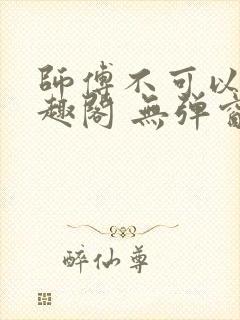 師傅不可以
趣閣 無彈窗
醉仙尊